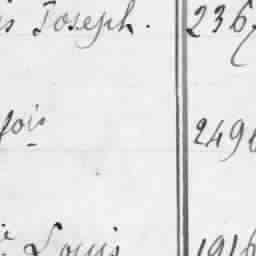 is Joseph. 2367
çois 2496
Louis 1916